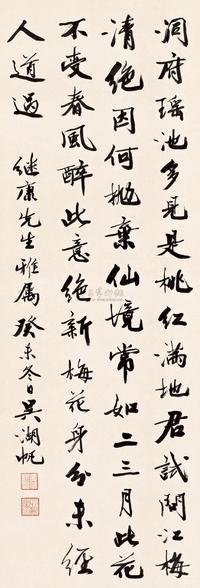 洞府瑶池多見是桃紅滿地君試問江梅
清絕因何拋棄仙境常如二三月此花
不受春風醉此意絕新梅花身分未經
人道過
继康先生雅属癸未冬日吴湖帆